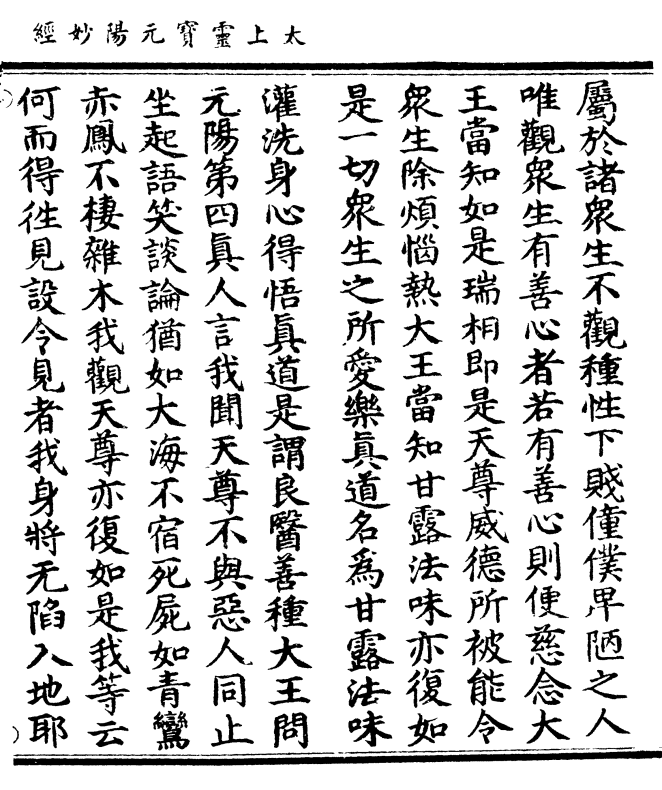 太上靈寶元陽妙經
屬於諸衆生不觀種性下賤僮僕卑陋之人
唯觀衆生有善心者若有善心則便慈念大
王當知如是瑞相即是天尊威德所被能令
衆生除煩惱熱大王當知甘露法味亦復如
是一切衆生之所愛樂眞道名爲甘露法味
灌洗身心得悟眞道是謂良醫善種大王問
元陽第四眞人言我聞天尊不與惡人同止
坐起語笑談論猶如大海不宿死屍如青鸞
赤鳳不棲雜木我觀天尊亦復如是我等云
何而得徃見設令見者我身將无陷入地耶